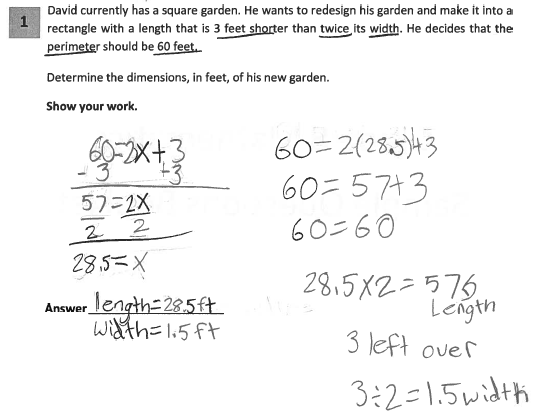 1
David currently has a square garden. He wants to redesign his garden and make it into a
rectangle with a length that is 3 feet shorter than twice its width. He decides that the
perimeter should be 60 feet.
Determine the dimensions, in feet, of his new garden.
Show your work.
60=2x+3
-3 +3
57=2x
2 2
28.5=x
Answer length=28.5ft
Width=1.5ft
60=2(28.5)+3
60=57+3
60=60
28.5x2=57
Length
3 left over
3÷2=1.5 width